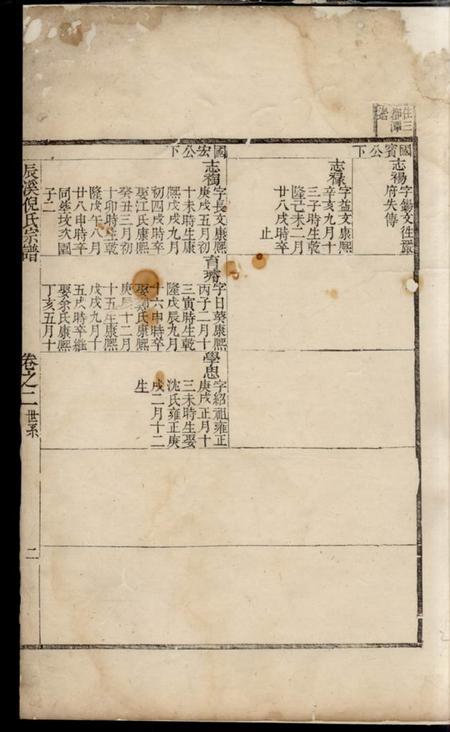 住三
都潭
國賓公下
志禓
字錫文往豫
府失傳
志祿
字益文康熙
辛亥九月十
三子時生乾
隆己未二月
廿八戌時卒
止
國宏公下
志禂
字長文康熙
庚戌五月初
十未時生康
熙戊戌九月
初四戌時卒
娶江氏康熙
癸丑三月初
十卯時生乾
隆戊午八月
廿八申時卒
同塟坟水園
子二
育璿
字日葵康熙
丙子二月十
三寅時生乾
隆戊辰九月
十六申時卒
娶氏康熙
庚辰十二月
十五生康熙
戊戌九月十
五戌時卒繼
娶余氏康熙
丁亥五月十
學思
字紹祖雍正
庚戌正月十
三未時生娶
沈氏雍正庚
戌二月十二
生
辰溪倪氏宗譜
卷之二
世系
二